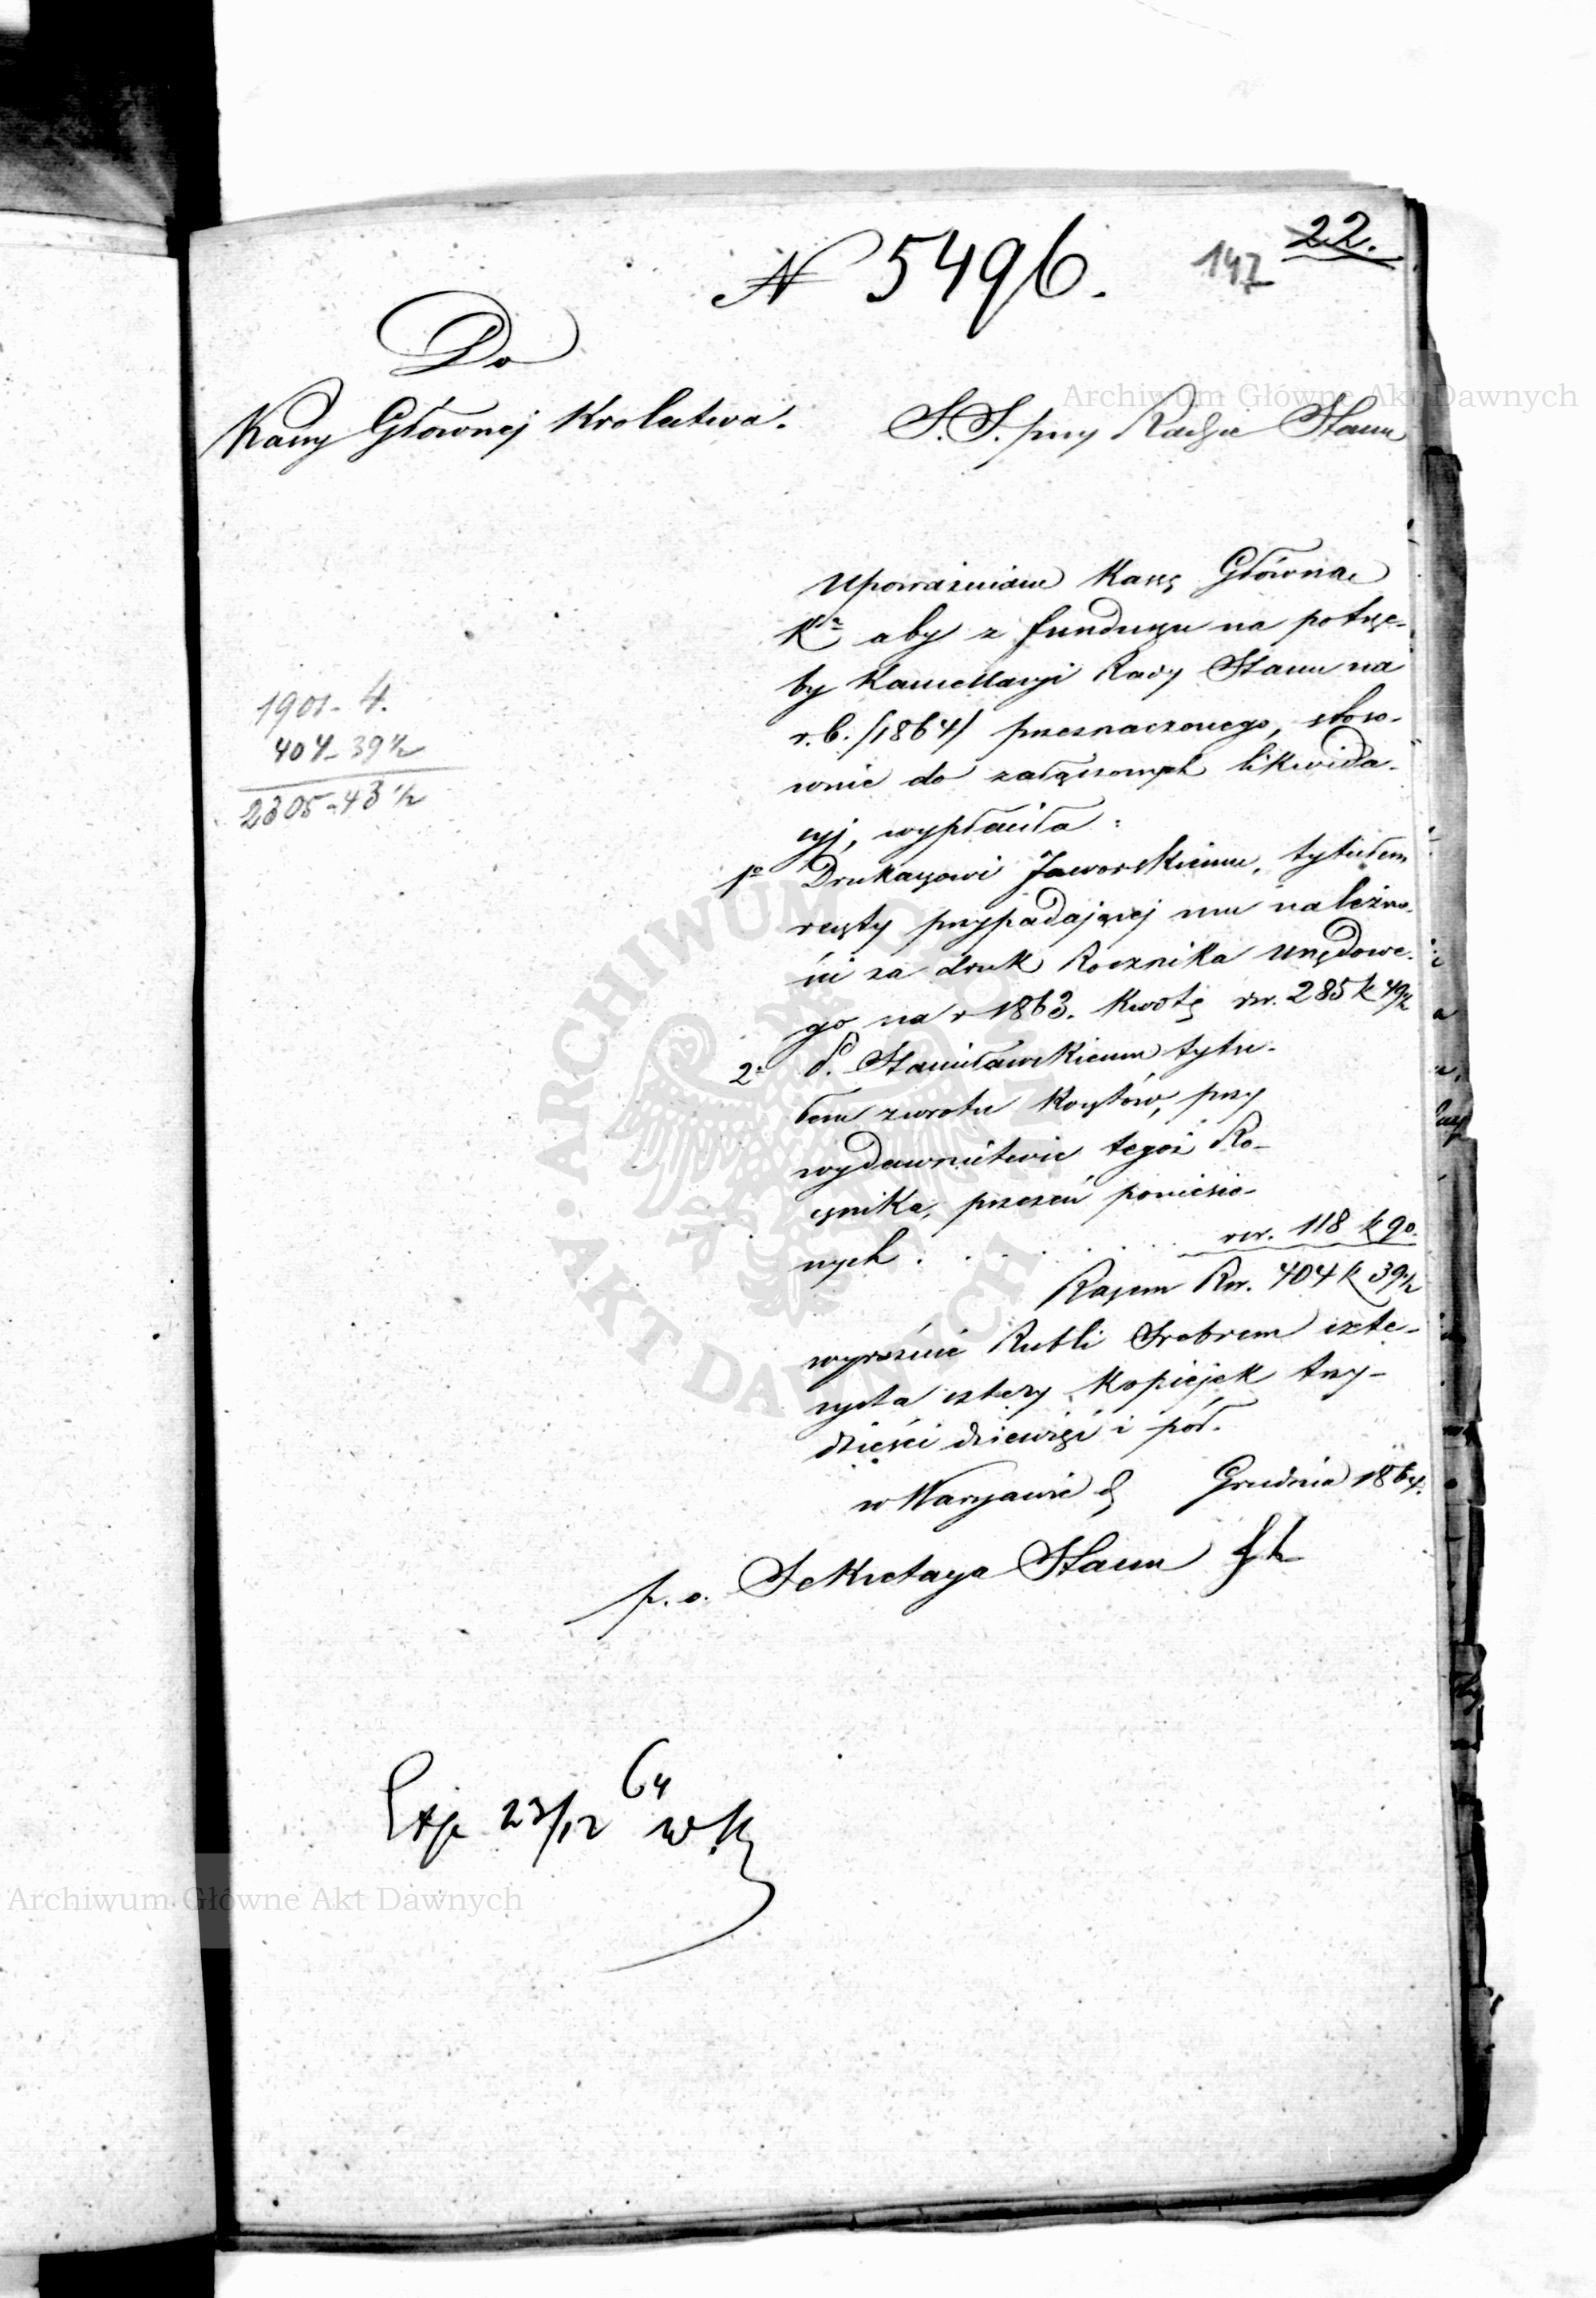 N 5496.
147
22.
Do
Kassy Głównej Królestwa.
S.S. przy Radzie Stanu
Upoważniam Kassę Główną
Kr aby z funduszu na potrze-
by Kancellaryi Rady Stanu na
r.b. /1864/ przeznaczonego, stoso-
wnie do załączonych likwida-
cyj, wypłaciła:
1o Drukarzowi Jaworskiemu, tytułem
reszty przypadającej mu należno-
ści za druk Rocznika Urzędowe-
go na r 1863. kwotę rsr. 285 k 49½
2o P. Stanisławskiemu tytu-
łem zwrotu kosztów, przy
wydawnictwie tegoż Ro-
cznika, przezeń poniesio-
nych . . . . . . rsr. 118 k 90.
Razem Rsr. 404 k 39½
wyraźnie Rubli Srebrem czte-
rysta cztery kopiejek trzy-
dzieści dziewięć i pół.
w Warszawie d Grudnia 1864.
p. o. Sekretarza Stanu
1901 - 4.
404 - 39½
2305 - 43½
Exp 23/12 64
Archiwum Główne Akt Dawnych
ARCHIWUM GŁÓWNE
AKT DAWNYCH
Archiwum Główne Akt Dawnych